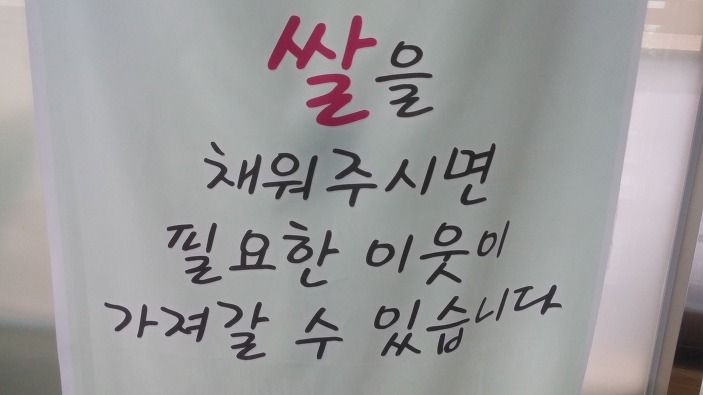 쌀을
채워주시면
필요한 이웃이
가져갈 수 있습니다